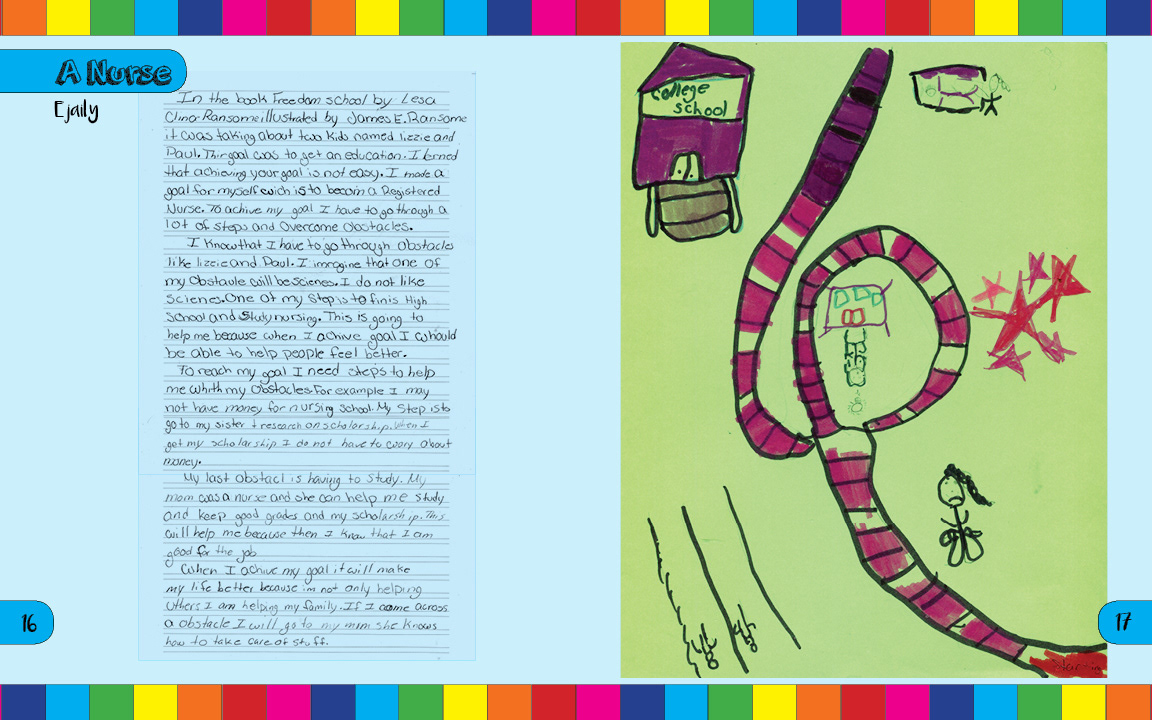 A Nurse
Ejaily
In the book Freedom school by Lesa
Cline-Ransome illustrated by James E. Ransome
it was taking about two kids named lizzie and
Paul. Thir goal was to get an education. I lerned
that achieving your goal is not easy. I made a
goal for myself wich is to becom a Registered
Nurse. To achive my goal I have to go through a
lot of steps and overcome obstacles.
I Know that I have to go through obstacles
like lizzie and Paul. I imagine that one of
my obstacule will be scienes. I do not like
scienes. One of my step is to finis High
school and Study nursing. This is going to
help me because when I achive goal I whould
be able to help people feel better.
To reach my goal I need steps to help
me whith my obstacles. For example I may
not have money for nursing school. My Step is to
go to my sister & research on scholarship. When I
get my scholarship I do not have to worry about
money.
My last obstacl is having to study. My
mom was a nurse and she can help me study
and keep good grades and my scholarship. This
will help me because then I know that I am
good for the job
When I achive my goal it will make
my life better because im not only helping
others I am helping my family. If I come across
a obstacle I will go to my mom she knows
how to take care of stuff.
16
college
school
17